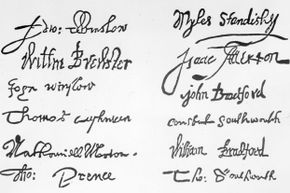 Edw: Winslow
Willm Brewster
John winslow
Thomas Cushman
Nathaniell Morton
Tho: Prence
Myles Standish
Isaac Allerton
john Bradford
Constant Southworth
William Bradford
Tho: Southworth